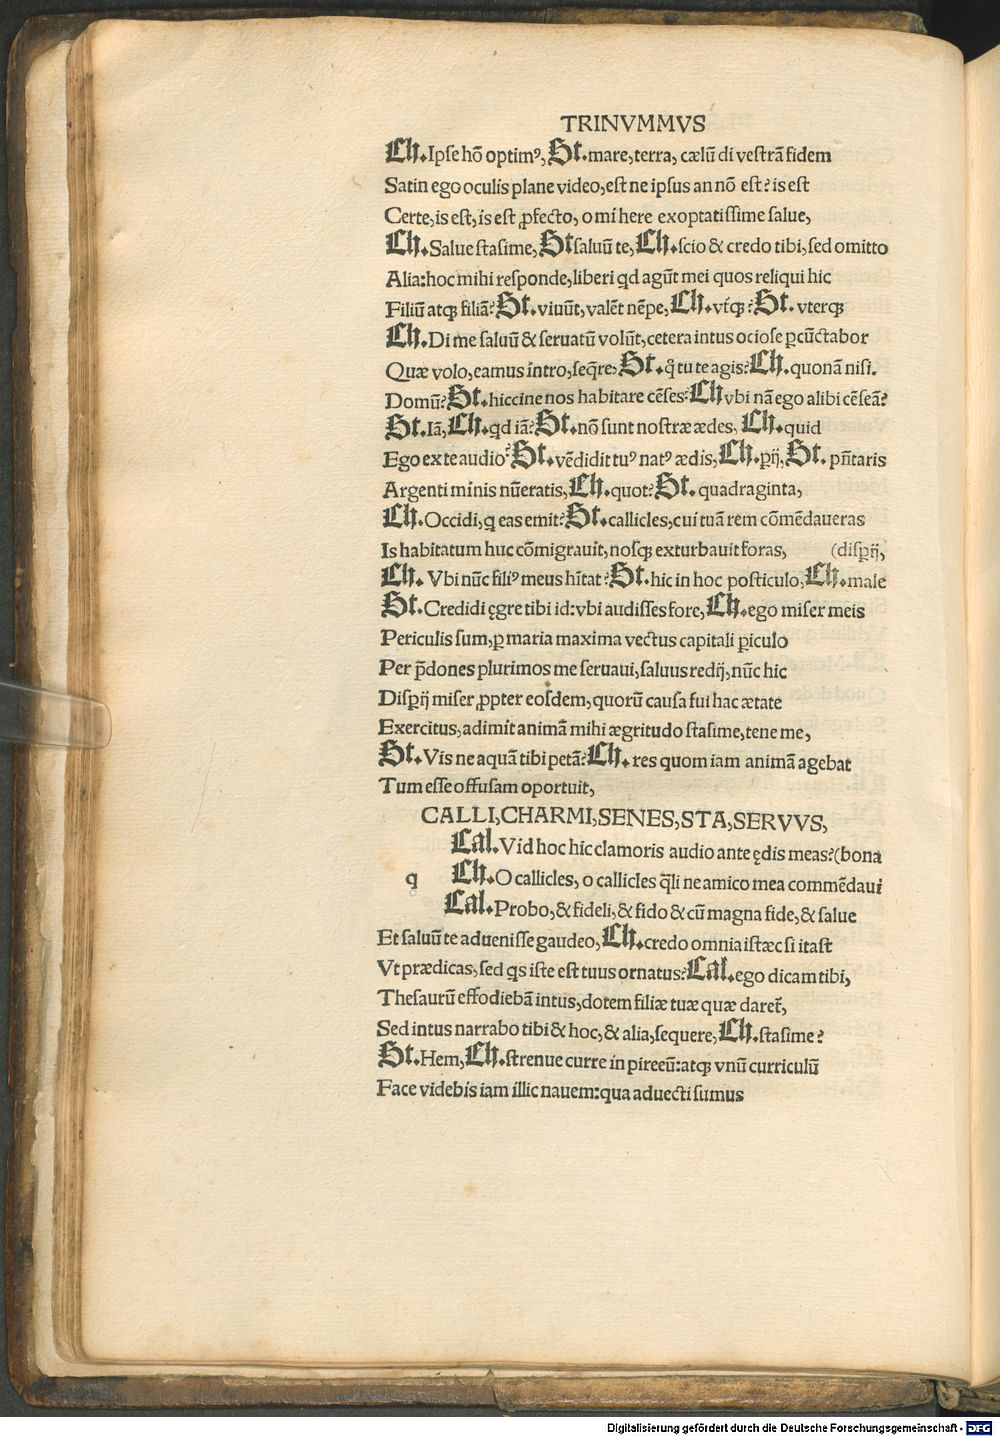 TRINVMMVS
Ch. Ipse hō optimꝰ, St. mare, terra, cælū di vestrā fidem
Satin ego oculis plane video, est ne ipsus an nō est? is est
Certe, is est, is est ꝓfecto, o mi here exoptatissime salue,
Ch. Salue stasime, St saluū te, Ch. scio & credo tibi, sed omitto
Alia: hoc mihi responde, liberi qd agūt mei quos reliqui hic
Filiū atqꝫ filiā? St. viuūt, valēt nēpe, Ch. vtqꝫ? St. vterqꝫ
Ch. Di me saluū & seruatū volūt, cetera intus ociose ꝑcūctabor
Quæ volo, eamus intro, seq̄re, St. q̊ tu te agis? Ch. quonā nisi.
Domū? St. hiccine nos habitare cēses? Ch vbi nā ego alibi cēseā?
St. Iā, Ch. qd iā? St. nō sunt nostræ ædes, Ch. quid
Ego ex te audio? St. vēdidit tuꝰ natꝰ ædis, Ch. ꝑij, St. pn̄taris
Argenti minis nūeratis, Ch. quot? St. quadraginta,
Ch. Occidi, q eas emit? St. callicles, cui tuā rem cōmēdaueras
Is habitatum huc cōmigrauit, nosqꝫ exturbauit foras, (disꝑij,
Ch. Vbi nūc filiꝰ meus hītat? St. hic in hoc posticulo, Ch. male
St. Credidi ęgre tibi id: vbi audisses fore, Ch. ego miser meis
Periculis sum, ꝑ maria maxima vectus capitali ꝑiculo
Per p̄dones plurimos me seruaui, saluus redij, nūc hic
Disꝑij miser ꝓpter eosdem, quorū causa fui hac ætate
Exercitus, adimit animā mihi ægritudo stasime, tene me,
St. Vis ne aquā tibi petā? Ch. res quom iam animā agebat
Tum esse offusam oportuit,
CALLI, CHARMI, SENES, STA, SERVVS,
Cal. Vid hoc hic clamoris audio ante ędis meas? (bona
q Ch. O callicles, o callicles q̄li ne amico mea commēdaui
Cal. Probo, & fideli, & fido & cū magna fide, & salue
Et saluū te aduenisse gaudeo, Ch. credo omnia istæc si itast
Vt prædicas, sed qs iste est tuus ornatus? Cal. ego dicam tibi,
Thesaurū effodiebā intus, dotem filiæ tuæ quæ daret̄,
Sed intus narrabo tibi & hoc, & alia, sequere, Ch. stasime?
St. Hem, Ch. strenue curre in pireeū: atqꝫ vnū curriculū
Face videbis iam illic nauem: qua aduecti sumus
Digitalisierung gefördert durch die Deutsche Forschungsgemeinschaft - DFG